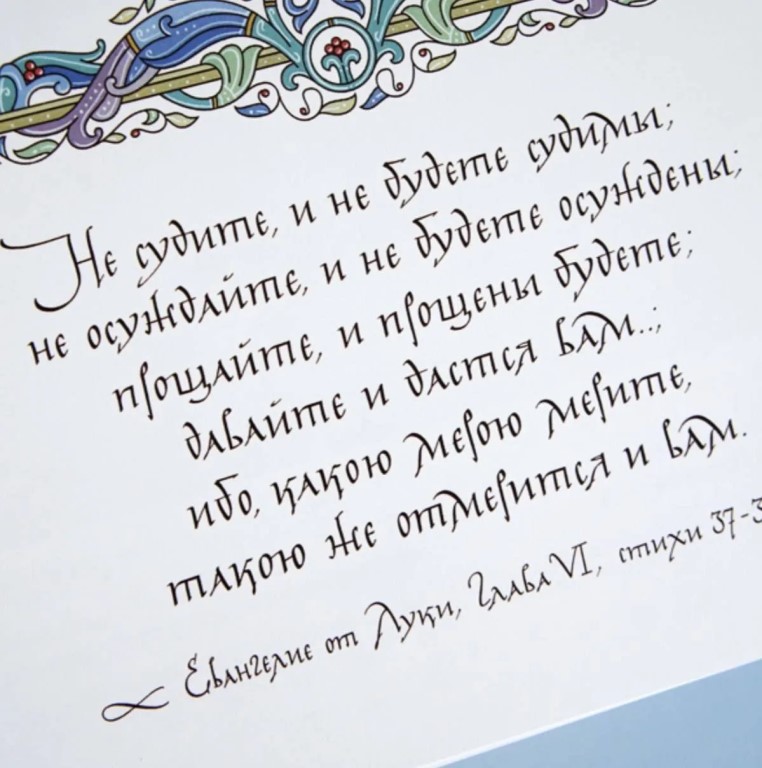 Не судите, и не будете судимы;
не осуждайте, и не будете осуждены;
прощайте, и прощены будете;
давайте и дастся вам..;
ибо, какою мерою мерите,
такою же отмерится и вам.
Евангелие от Луки, Глава VI, стихи 37-3